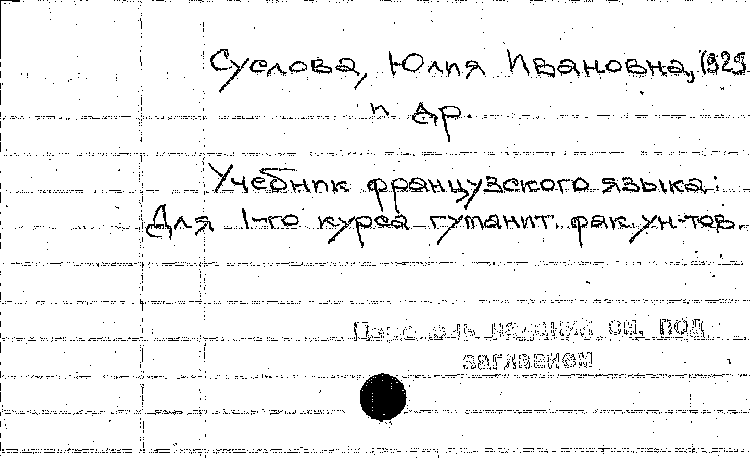 Суслова, Юлия Ивановна, 1929
и др.
Учебник французского языка:
Для 1-го курса гуманит. фак. ун-тов.
см. под
заглавием